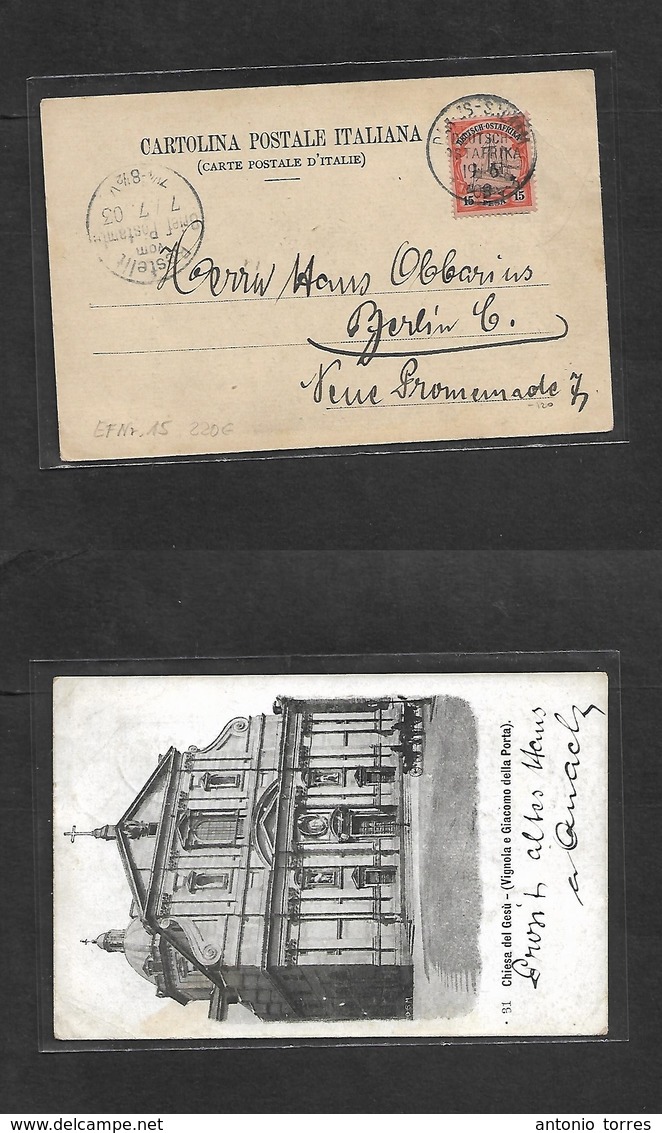 CARTOLINA POSTALE ITALIANA
(CARTE POSTALE D'ITALIE)
DEUTSCH-OSTAFRIKA
15 PESA 15
DEUTSCH-
OSTAFRIKA
Bestellt
vom
Postamte
7/7.03
7½-8½V
Herrn Hans Obbarius
Berlin C.
Neue Promenade 7
-120
EFNr.15 220€
· 31 Chiesa del Gesù - (Vignola e Giacomo della Porta).
Prosit altes Haus
antonio torres